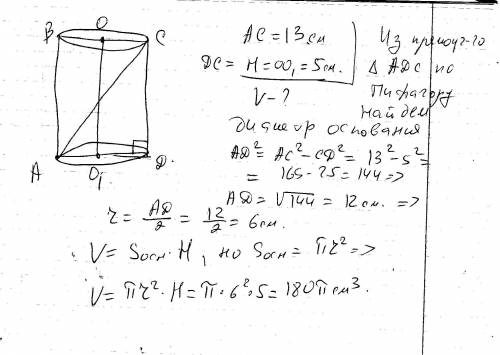 B O C
A O₁ D
AC = 13 см
DC = H = OO₁ = 5 см.
V - ?
Из прямоуг-го
Δ ADC по
Пифагору
найдем
диаметр основания
AD² = AC² - CD² = 13² - 5² =
= 169 - 25 = 144 =>
AD = √144 = 12 см. =>
r = AD/2 = 12/2 = 6 см.
V = Sосн · H, но Sосн = πr² =>
V = πr² · H = π · 6² · 5 = 180π см³.